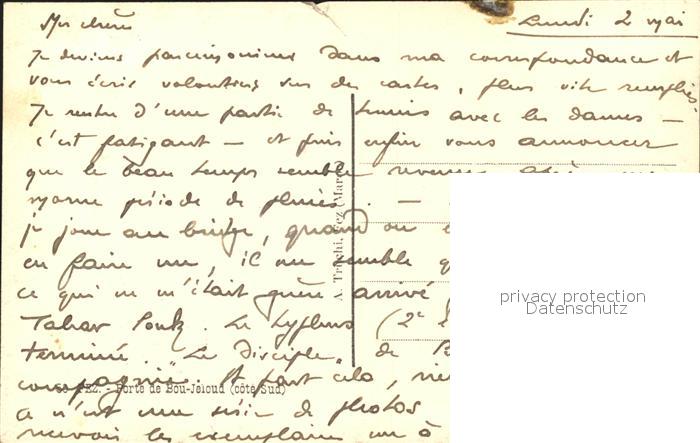 Lundi 2 mai
Mes chers
Je deviens parcimonieux dans ma correspondance et
vous écris volontiers sur des cartes, plus vite remplies
Je rentre d'une partie de tennis avec les dames —
c'est fatigant — et puis enfin vous annoncer
que le beau temps semble revenu après une
période de pluies. —
je joue au bridge, quand on
en faire un, il me semble
ce qui ne m'était guère arrivé
Tahar Souk. Le (2e
terminé. "Le Disciple" de B
compagnie. A part cela,
a n'est une série de photos
recevoir les exemplaires un à
A. Trinchi, Fez (Maroc)
FEZ. - Porte de Bou-Jeloud (côté Sud)
privacy protection
Datenschutz